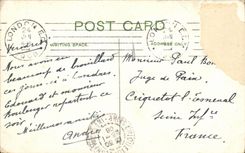 POST CARD
LONDON E
WRITING SPACE.
ADDRESS ONLY
Vendredi
Nous avons eu
beaucoup de brouillard
ces jours-ci à Londres.
Edouard et monsieur
Boulanger repartent ce
soir.
Meilleures amitiés
André
Monsieur Paul Bon
Juge de Paix
Criquetot l'Esneval
Seine Infre
France